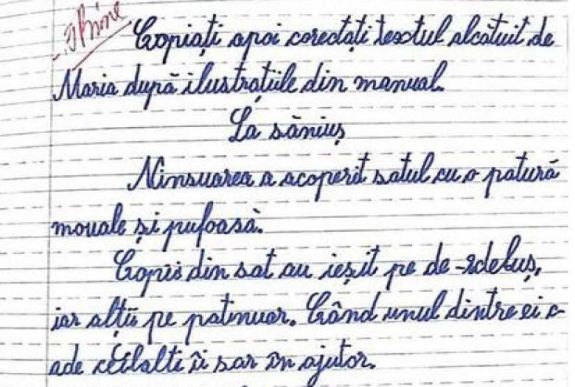 Bine
Copiați apoi corectați textul alcătuit de
Maria după ilustrațiile din manual.
La săniuș
Ninsuarea a acoperit satul cu o patură
mouale și pufoasă.
Copiii din sat au ieșit pe de-rdeluș,
iar alții pe patinuar. Când unul dintre ei c-
ade ceilalti îi sar în ajutor.